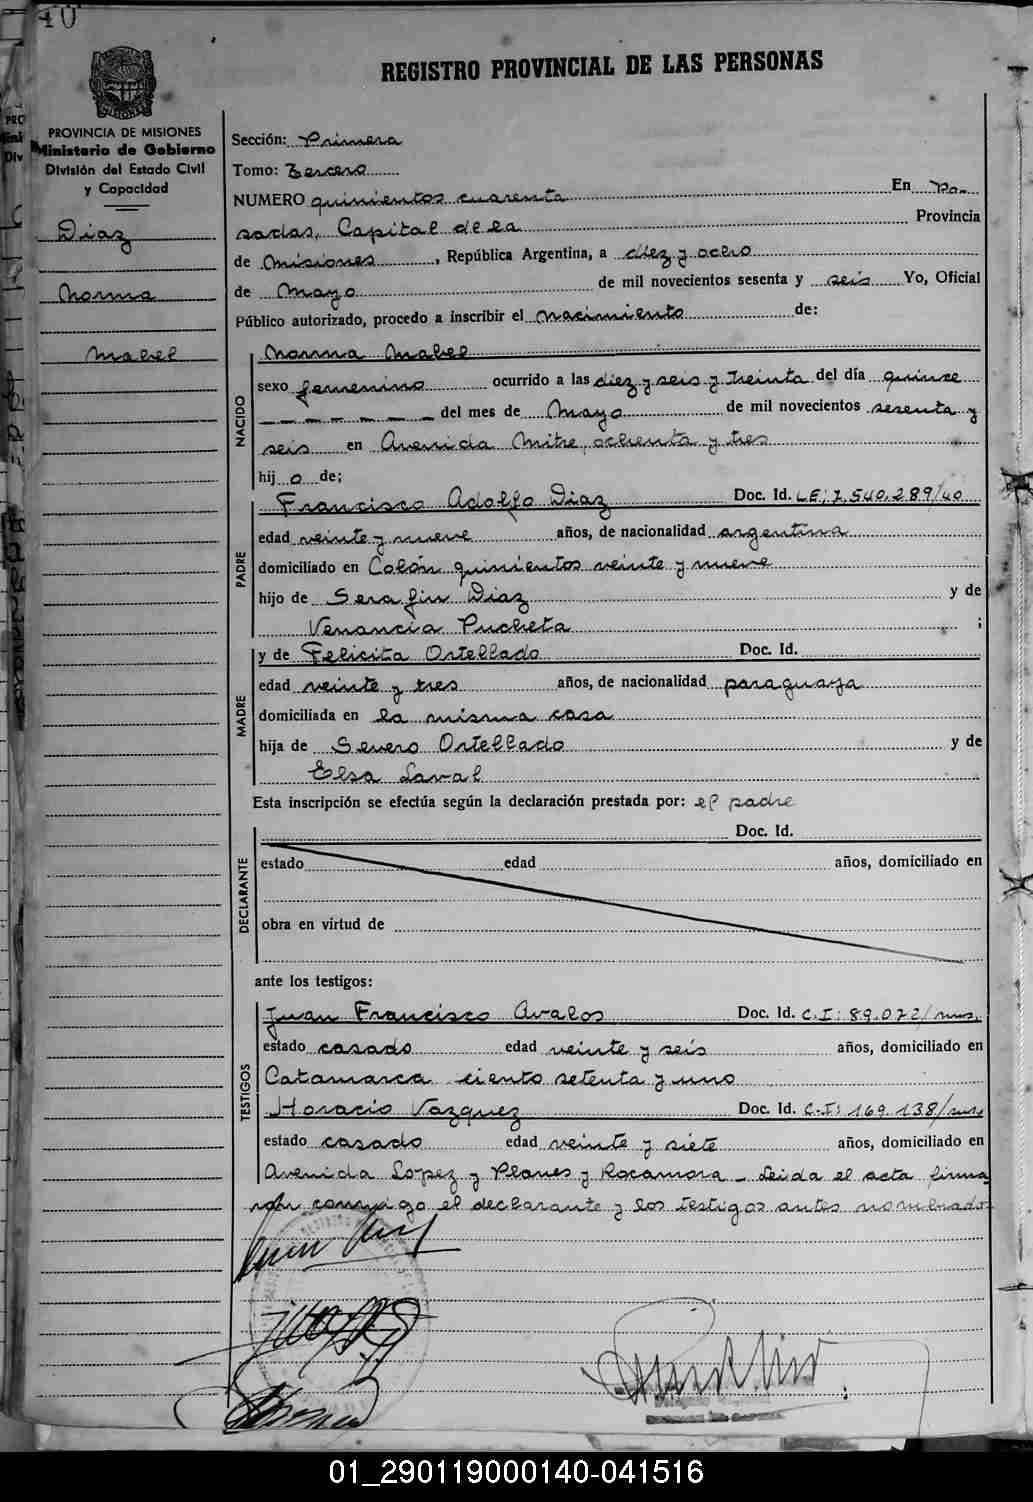 REGISTRO PROVINCIAL DE LAS PERSONAS
PROVINCIA DE MISIONES
Ministerio de Gobierno
División del Estado Civil
y Capacidad
Diaz
Norma
Mabel
Sección: Primera
Tomo: Tercero
NUMERO quinientos cuarenta En Po-
sadas, Capital de la Provincia
de Misiones, República Argentina, a diez y ocho
de Mayo de mil novecientos sesenta y seis Yo, Oficial
Público autorizado, procedo a inscribir el nacimiento de:
NACIDO
Norma Mabel
sexo femenino ocurrido a las diez y seis y treinta del día quince
— — — — — — del mes de Mayo de mil novecientos sesenta y
seis en Avenida Mitre, ochenta y tres
hij a de;
PADRE
Francisco Adolfo Diaz Doc. Id. LE: 7.540.289/40
edad veinte y nueve años, de nacionalidad argentina
domiciliado en Colón quinientos veinte y nueve
hijo de Serafin Diaz y de
Venancia Pucheta ;
MADRE
y de Felicita Ortellado Doc. Id.
edad veinte y tres años, de nacionalidad paraguaya
domiciliada en la misma casa
hija de Severo Ortellado y de
Elsa Laval
Esta inscripción se efectúa según la declaración prestada por: el padre
DECLARANTE
Doc. Id.
estado edad años, domiciliado en
obra en virtud de
ante los testigos:
TESTIGOS
Juan Francisco Avalos Doc. Id. C.I: 89.072/mns.
estado casado edad veinte y seis años, domiciliado en
Catamarca ciento setenta y uno
Horacio Vazquez Doc. Id. C.I: 169.138/mns
estado casado edad veinte y siete años, domiciliado en
Avenida Lopez y Planes y Rocamora - Leida el acta firma-
ron conmigo el declarante y los testigos antes nombrados
01_290119000140-041516